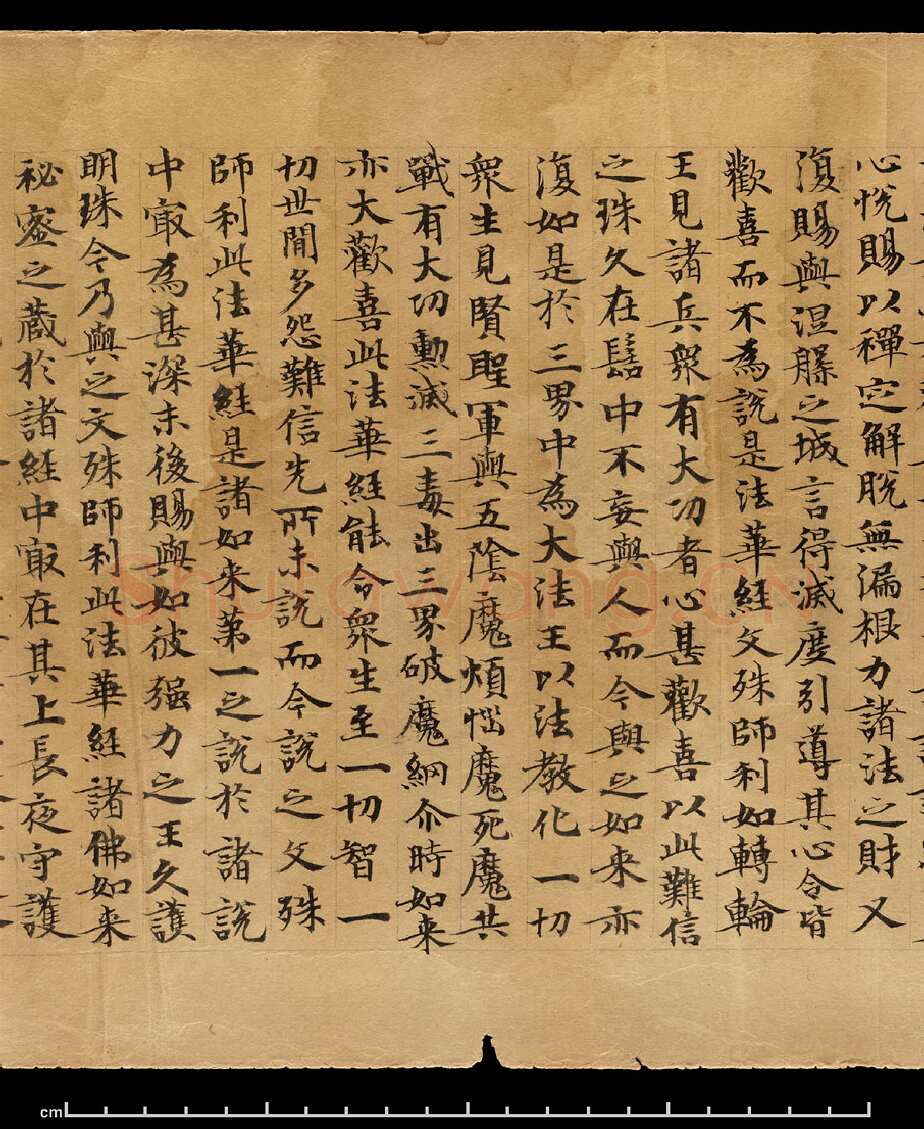 心恱賜以禪定解脫無漏根力諸法之財又
復賜與涅槃之城言得滅度引導其心令皆
歡喜而不為說是法華經文殊師利如轉輪
王見諸兵衆有大功者心甚歡喜以此難信
之珠久在髻中不妄與人而今與之如来亦
復如是於三界中為大法王以法教化一切
衆生見賢聖軍與五陰魔煩惱魔死魔共
戰有大功勳滅三毒出三界破魔網尒時如来
亦大歡喜此法華經能令衆生至一切智一
切世間多怨難信先所未說而今說之文殊
師利此法華經是諸如来第一之說於諸說
中㝡為甚深末後賜與如彼强力之王久護
明珠今乃與之文殊師利此法華經諸佛如来
祕密之藏於諸經中㝡在其上長夜守護
shufawang.CN
cm